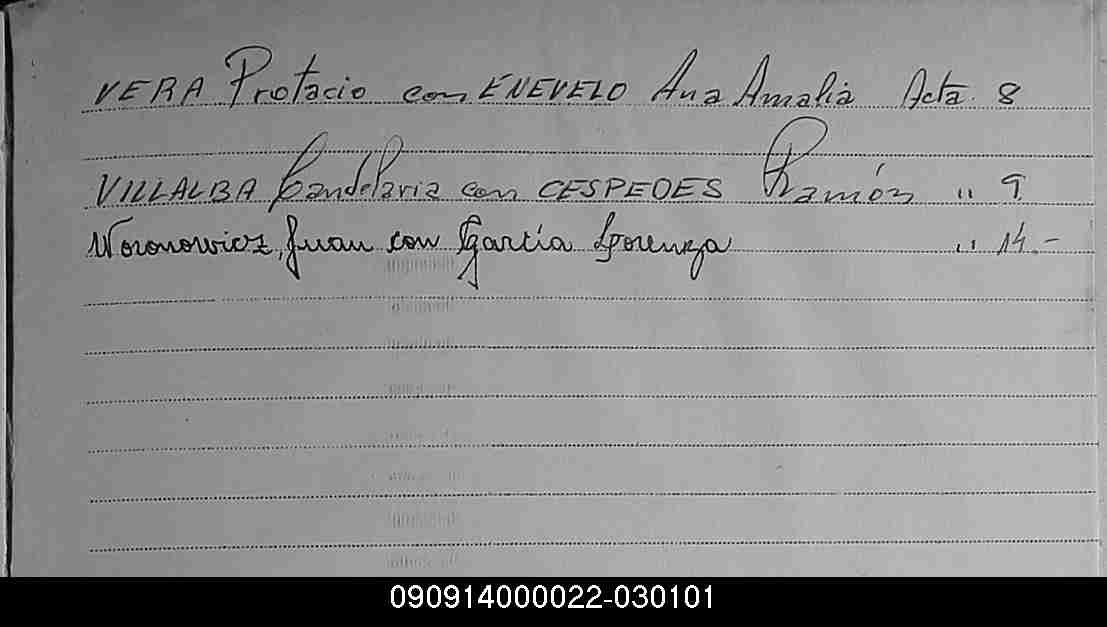 VERA Protacio con ENEVELO Ana Amalia Acta 8
VILLALBA Candelaria con CESPEDES Ramón " 9
Woronowicz, Juan con García Lorenza " 14.-
090914000022-030101